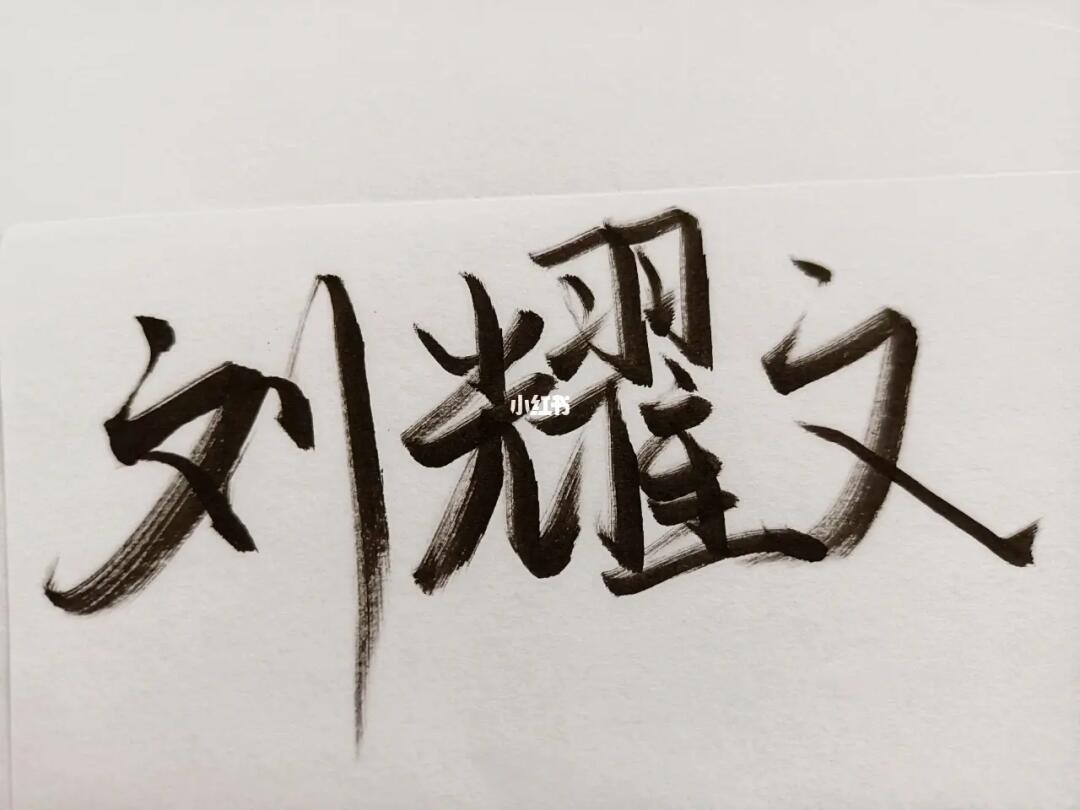 刘耀文
小红书